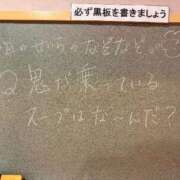 必ず黒板を書きましょう
のなぞなぞ
Q.鬼が乗っている
スープはな〜んだ?